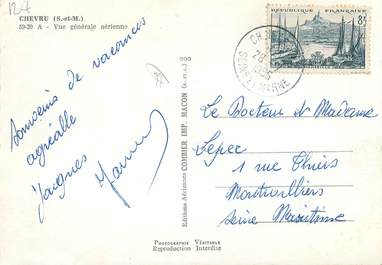 127
CHEVRU (S.-et-M.)
59-20 A - Vue générale aérienne
Souvenirs de vacances
agréable
Jacques
Editions Aériennes COMBIER IMP. MACON (S.-et-L.)
PHOTOGRAPHIE VÉRITABLE
Reproduction Interdite
REPUBLIQUE FRANÇAISE
8F
28
1956
SEINE ET MARNE
Le Docteur et Madame
Lepec
1 rue Thiers
Montivilliers
Seine Maritime